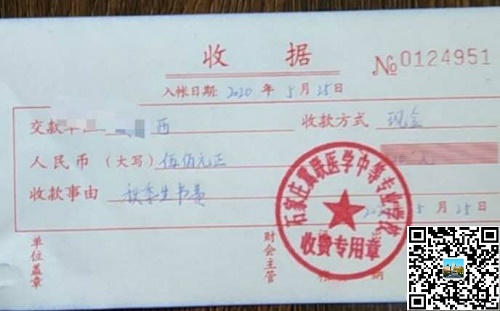 收 据
№0124951
入帐日期: 2020 年 5 月 25 日
交款单位 西 收款方式 现金
人民币（大写）伍佰元正
收款事由 秋季生书费
石家庄冀联医学中等专业学校
收费专用章
5 月 25 日
单位盖章
财会主管